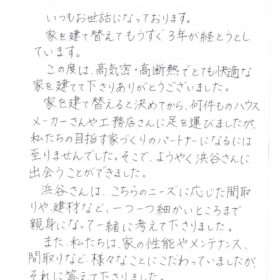 いつもお世話になっております。
家を建て替えてもうすぐ3年が経とうとし
ています。
この度は、高気密・高断熱でとても快適な
家を建てて下さりありがとうございました。
家を建て替えると決めてから、何件ものハウス
メーカーさんや工務店さんに足を運びましたが、
私たちの目指す家づくりのパートナーになるには
至りませんでした。そこで、ようやく浜谷さんに
出会うことができました。
浜谷さんは、こちらのニーズに応じた間取
りや建材など、一つ一つ細かいところまで
親身になって一緒に考えて下さりました。
また、私たちは、家の性能やメンテナンス、
間取りなど、様々なことにこだわっていましたが
それに答えて下さりました。